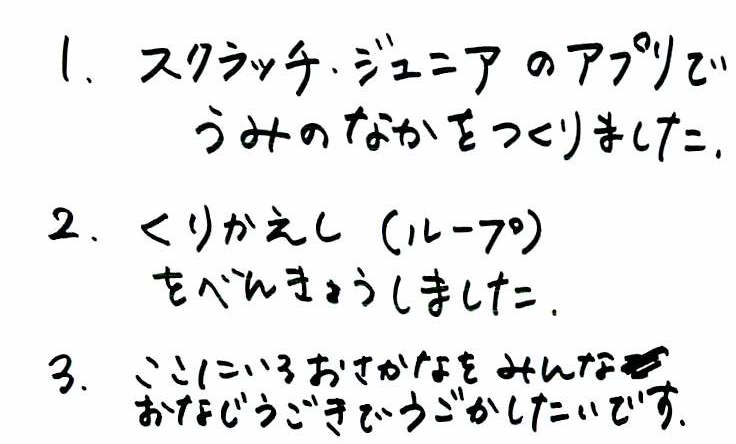 1. スクラッチ・ジュニアのアプリで
うみのなかをつくりました.
2. くりかえし (ループ)
をべんきょうしました.
3. ここにいるおさかなをみんな
おなじうごきでうごかしたいです.